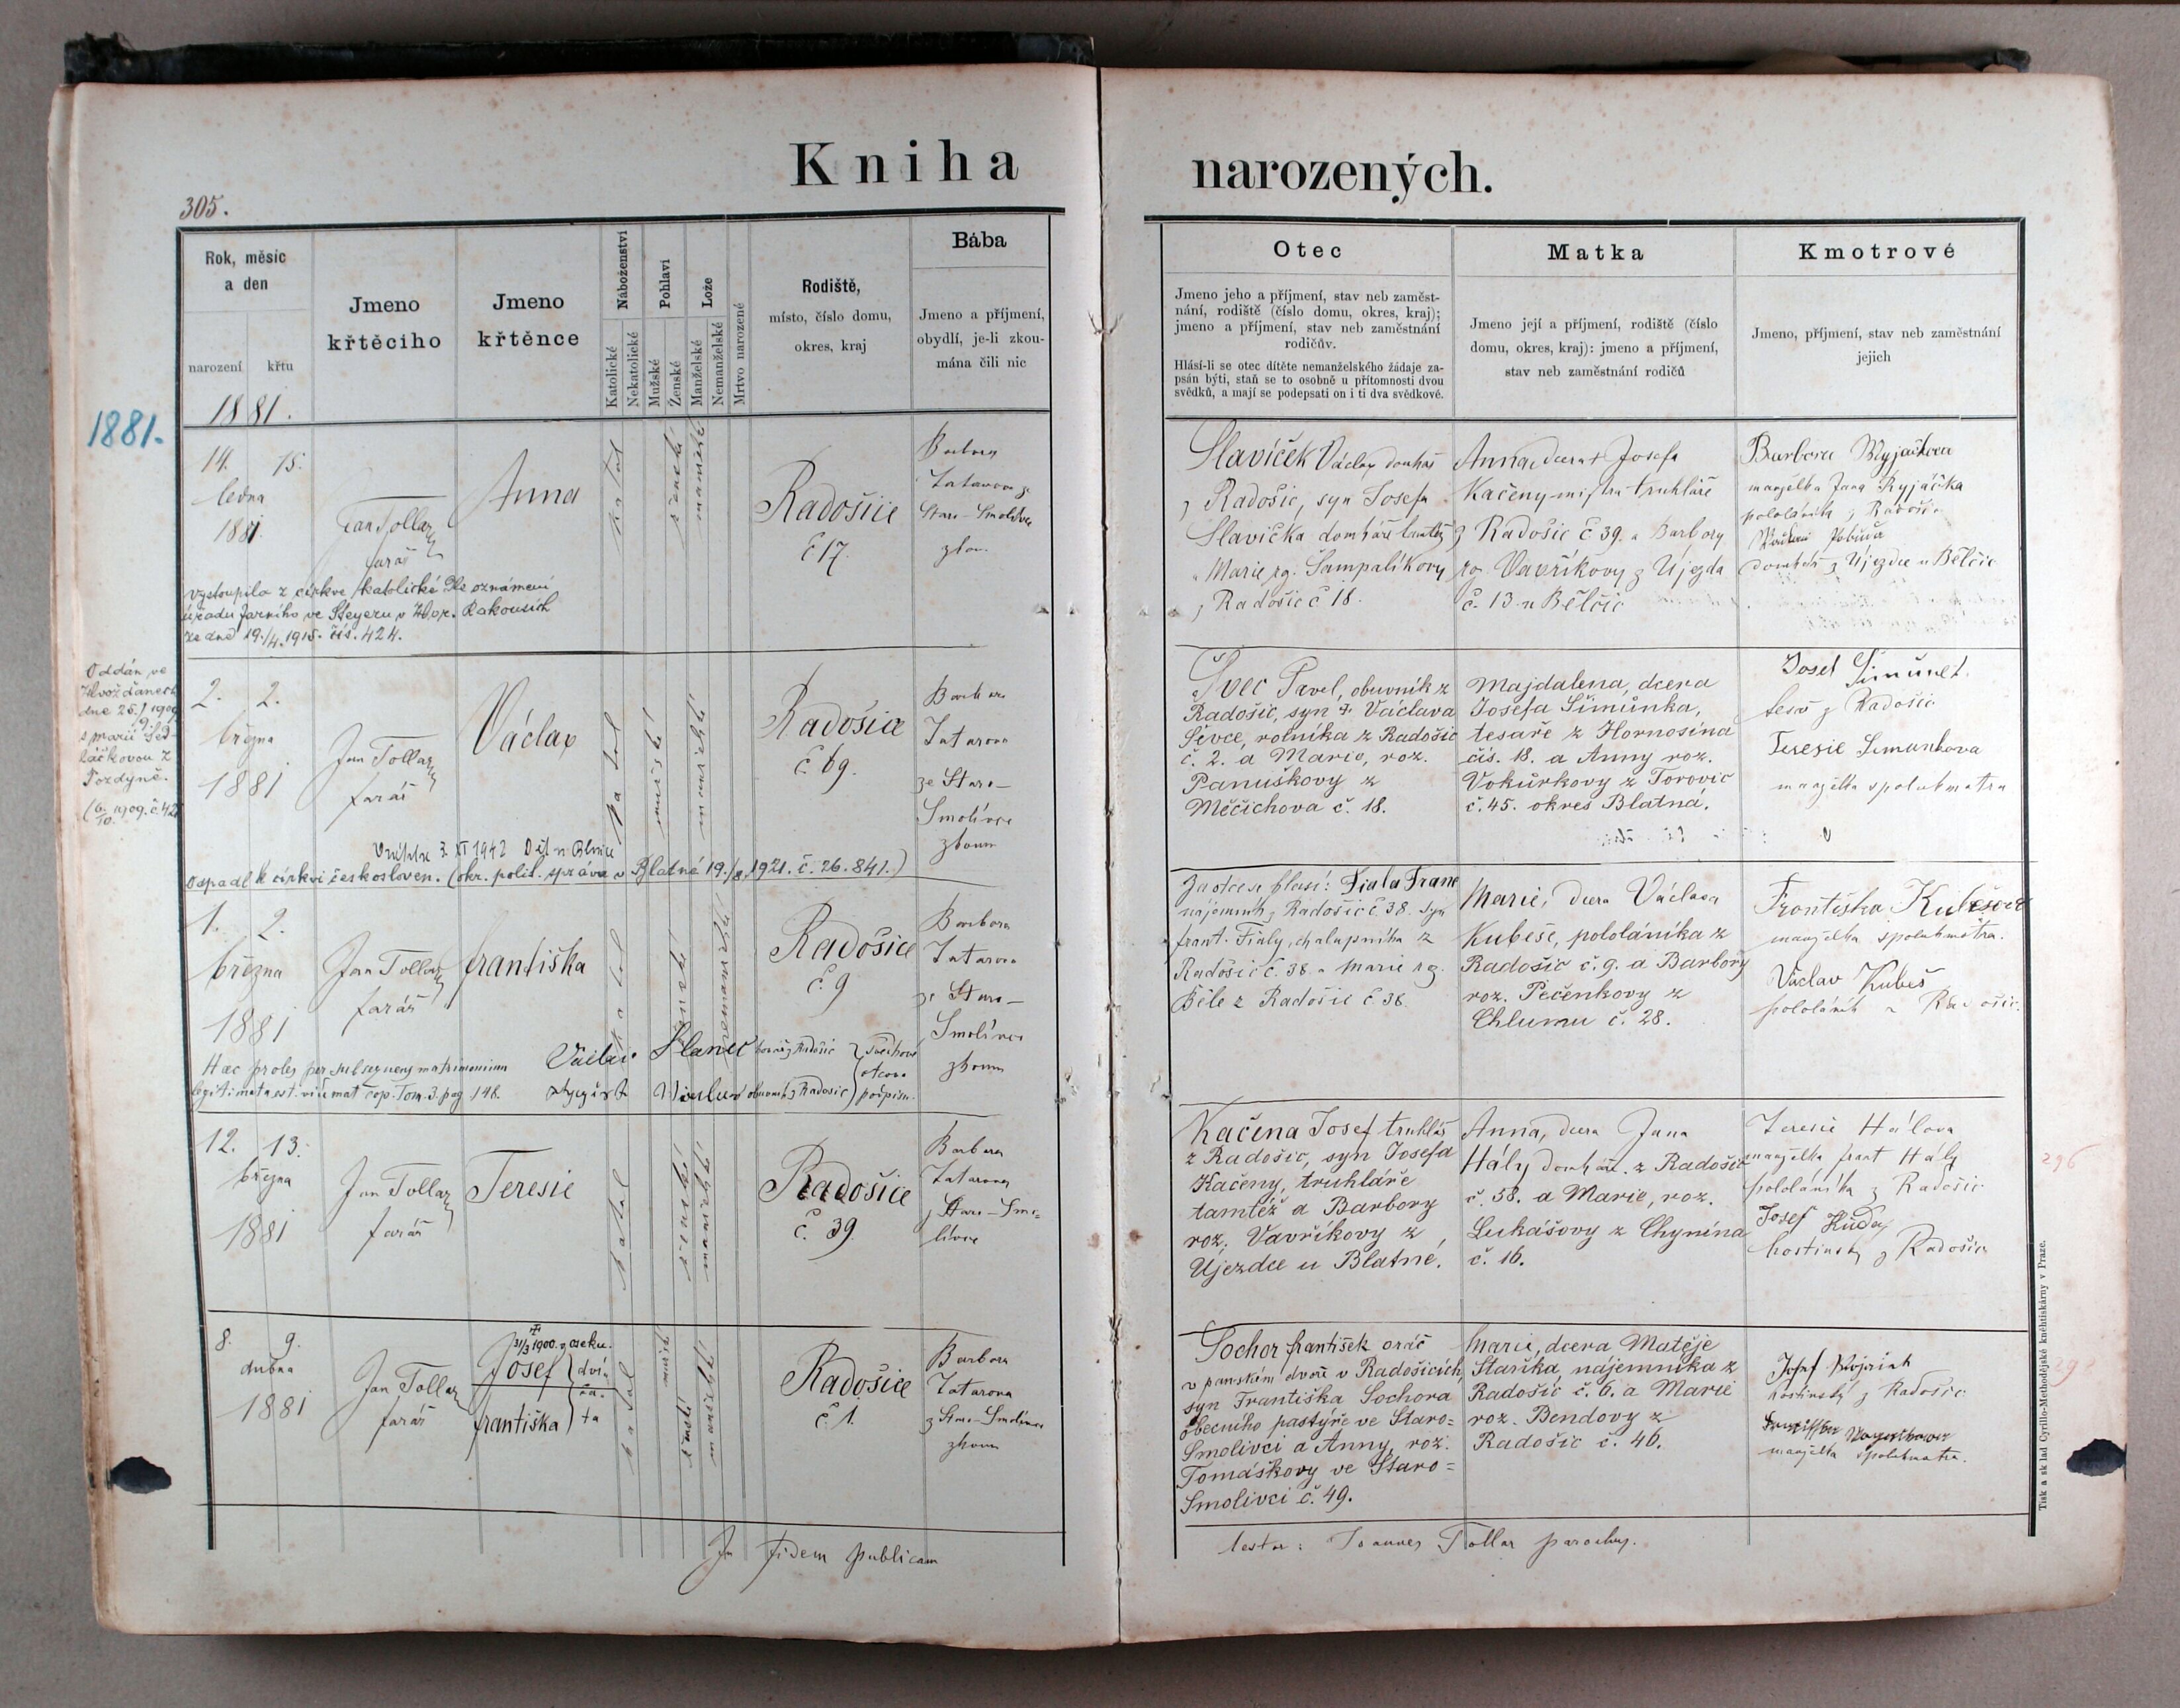 Kniha narozených.
305.
Rok, měsíc
a den
narození
křtu
1881.
Jmeno
křtěcího
Jmeno
křtěnce
Náboženství
Katolické
Nekatolické
Pohlaví
Mužské
Ženské
Lože
Manželské
Nemanželské
Mrtvo narozené
Rodiště,
místo, číslo domu,
okres, kraj
Bába
Jmeno a příjmení,
obydlí, je-li zkou-
mána čili nic
Otec
Jmeno jeho a příjmení, stav neb zaměst-
nání, rodiště (číslo domu, okres, kraj);
jmeno a příjmení, stav neb zaměstnání
rodičův.
Hlásí-li se otec dítěte nemanželského žádaje za-
psán býti, staň se to osobně u přítomnosti dvou
svědků, a mají se podepsati on i ti dva svědkové.
Matka
Jmeno její a příjmení, rodiště (číslo
domu, okres, kraj): jmeno a příjmení,
stav neb zaměstnání rodičů
Kmotrové
Jmeno, příjmení, stav neb zaměstnání
jejich
1881.
14. 15.
ledna
1881.
Jan Tollar
farář
Anna
Radošice
č 17.
Barbora
Tatarova
Staro-Smolivce
Slavíček Václav domkař
z Radošic, syn Josefa
Slavička domkáře tamtéž
a Marie rz. Šampalíkovy
z Radošic č 18.
Anna dcera Josefa
Kačeny mistra truhláře
z Radošic č 39. a Barbory
roz. Vavříkovy z Újezda
č. 13 u Bělčic
Barbora
manželka Jana
pololáníka z Radošic
domkář z Újezdce u Bělčic
vystoupila z církve katolické dle oznámení
úřadu farního ve Steyeru v Hor. Rakousích
ze dne 19./4. 1915. čís. 424.
Oddán ve
Hvožďanech
dne 25./
s Marií Sed-
láčkovou z
Pozdyně.
2. 2.
března
1881
Jan Tollar
farář
Václav
katol
mužské
manželské
Radošice
č. 69.
Barbora
Tatarova
ze Staro-
Smolivce
zkoum
Švec Pavel, obuvník z
Radošic, syn † Václava
Ševce, rolníka z Radošic
č. 2. a Marie, roz.
Panuškovy z
Měčichova č. 18.
Majdalena, dcera
Josefa Šimůnka,
tesaře z Hornosína
čís. 18. a Anny roz.
Vokůrkovy z Torovic
č. 45. okres Blatná.
Josef Šimůnek
tesař z Radošic
Teresie Šimunkova
manželka spolukmotra
1942
Odpadl k církvi českosloven. (okr. polit. správa v Blatné 19./8. 1921. č. 26.841.)
1. 2.
března
1881
Jan Tollar
farář
Františka
Radošice
č. 9
Barbora
Tatarova
ze Staro-
Smolivce
zkoum
Za otce se hlásí: Fiala Frant
nájemník z Radošic č. 38. syn
Frant. Fialy, chalupníka z
Radošic č. 38. a Marie rz.
Běle z Radošic č 36.
Marie, dcera Václava
Kubeše, pololáníka z
Radošic č. 9. a Barbory
roz. Pečenkovy z
Chlumu č. 28.
Františka Kubešova
manželka spolukmotra.
Václav Kubeš
pololáník z Radošic.
Haec proles per subsequens matrimonium
legitimata est. vide mat. cop. Tom. 3. pag 148.
Václav z Radošic svědkové
obuvník z Radosic otcova podpisu.
12. 13.
března
1881
Jan Tollar
farář
Teresie
katol
ženské
manželské
Radošice
č. 39.
Barbora
Tatarova
z Staro-Smo=
livce
Kačena Josef truhlář
z Radošic, syn Josefa
Kačeny, truhláře
tamtéž a Barbory
roz. Vavříkovy z
Újezdce u Blatné.
Anna, dcera Jana
Hály domkáře z Radošic
č. 58. a Marie, roz.
Lukášovy z Chynína
č. 16.
Teresie Hálova
manželka Frant Hály
pololáníka z Radošic
Josef
hostinský z Radošic
296
8. 9.
dubna
1881
Jan Tollar
farář
† 31/3 1900. v Oseku.
Josef
Františka
dvíčata
Radošice
č. 1.
Barbora
Tatarova
z Staro-Smolivce
zkoum
Sochor František oráč
v panském dvoře v Radošicích,
syn Františka Sochora
obecního pastýře ve Staro=
Smolivci a Anny, roz.
Tomáškovy ve Staro=
Smolivci č. 49.
Marie, dcera Matěje
Staříka, nájemníka z
Radošic č. 6. a Marie
roz. Bendovy z
Radošic č. 46.
Josef
hostinský z Radošic
manželka spolukmotra.
In fidem publicam
testor: Joannes Tollar parochus.
Tisk a sklad Cyrillo-Methodějské knihtiskárny v Praze.